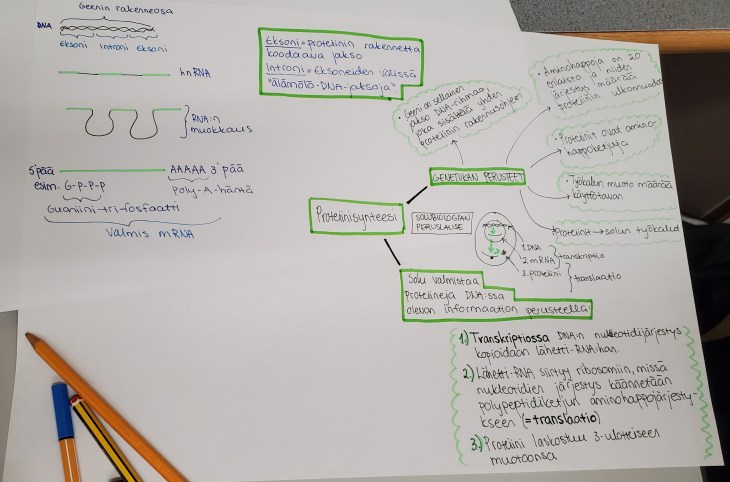 Geenin rakenneosa
DNA
Eksoni Introni Eksoni
hnRNA
RNA:n
muokkaus
5'pää
AAAAA 3'pää
esim. G-P-P-P
Poly-A-häntä
Guaniini-tri-fosfaatti
Valmis mRNA
Eksoni = proteiinin rakennetta
koodaava jakso
Introni = Eksoneiden välissä
"älämölö-DNA-jaksoja"
• Geeni on sellainen
jakso DNA-rihmaa,
joka sisältää yhden
proteiinin rakennusohjeen
• Aminohappoja on 20
erilaista ja niiden
järjestys määrää
proteiinin ulkomuodon
• Proteiinit ovat amino-
happoketjuja
GENETIIKAN PERUSTEET
• Työkalun muoto määrää
käyttötavan
Proteiinisynteesi
SOLUBIOLOGIAN
PERUSLAUSE
Proteiinit → solun työkalut
1. DNA
2. mRNA
3. proteiini
transkriptio
translaatio
Solu valmistaa
proteiineja DNA:ssa
olevan informaation perusteella.
1) Transkriptiossa DNA:n nukleotidijärjestys
kopioidaan lähetti-RNA:han.
2) Lähetti-RNA siirtyy ribosomiin, missä
nukleotidien järjestys käännetään
polypeptidiketjun aminohappojärjesty-
kseen (=translaatio)
3) Proteiini laskostuu 3-uloteiseen
muotoonsa